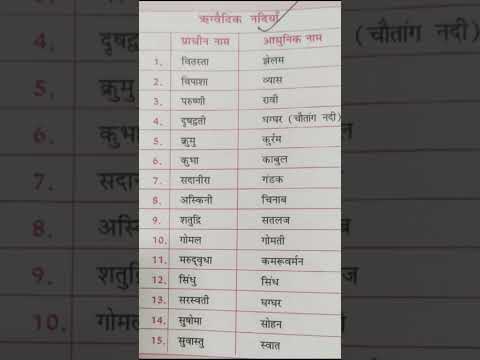 ऋग्वैदिक नदियाँ
प्राचीन नाम आधुनिक नाम
1. वितस्ता झेलम
2. विपाशा व्यास
3. परुष्णी रावी
4. दृषद्वती घग्घर (चौतांग नदी)
5. क्रुमु कुर्रम
6. कुभा काबुल
7. सदानीरा गंडक
8. अस्किनी चिनाब
9. शतुद्रि सतलज
10. गोमल गोमती
11. मरुद्वृधा कमरूवर्मन
12. सिंधु सिंध
13. सरस्वती घग्घर
14. सुषोमा सोहन
15. सुवास्तु स्वात
4. दृषद्वती
5. क्रुमु
6. कुभा
7. सदानी
8. अस्कि
9. शतुद्रि
10. गोम
(चौतांग नदी)